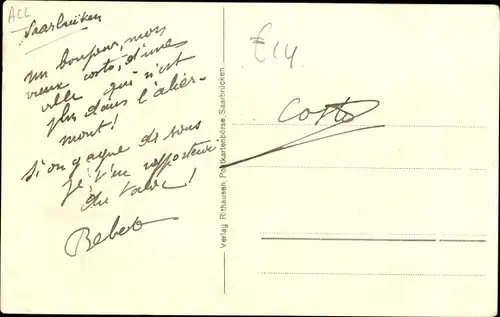 ALL
Saarbrücken
un bonjour, mon
vieux costo, d'une
ville qui n'est
plus dans l'
mont!
Si on gagne des sous
je t'en
du tabac!
Bebert
£14
Costo
Verlag Rithausen, Postkartenbörse, Saarbrücken.